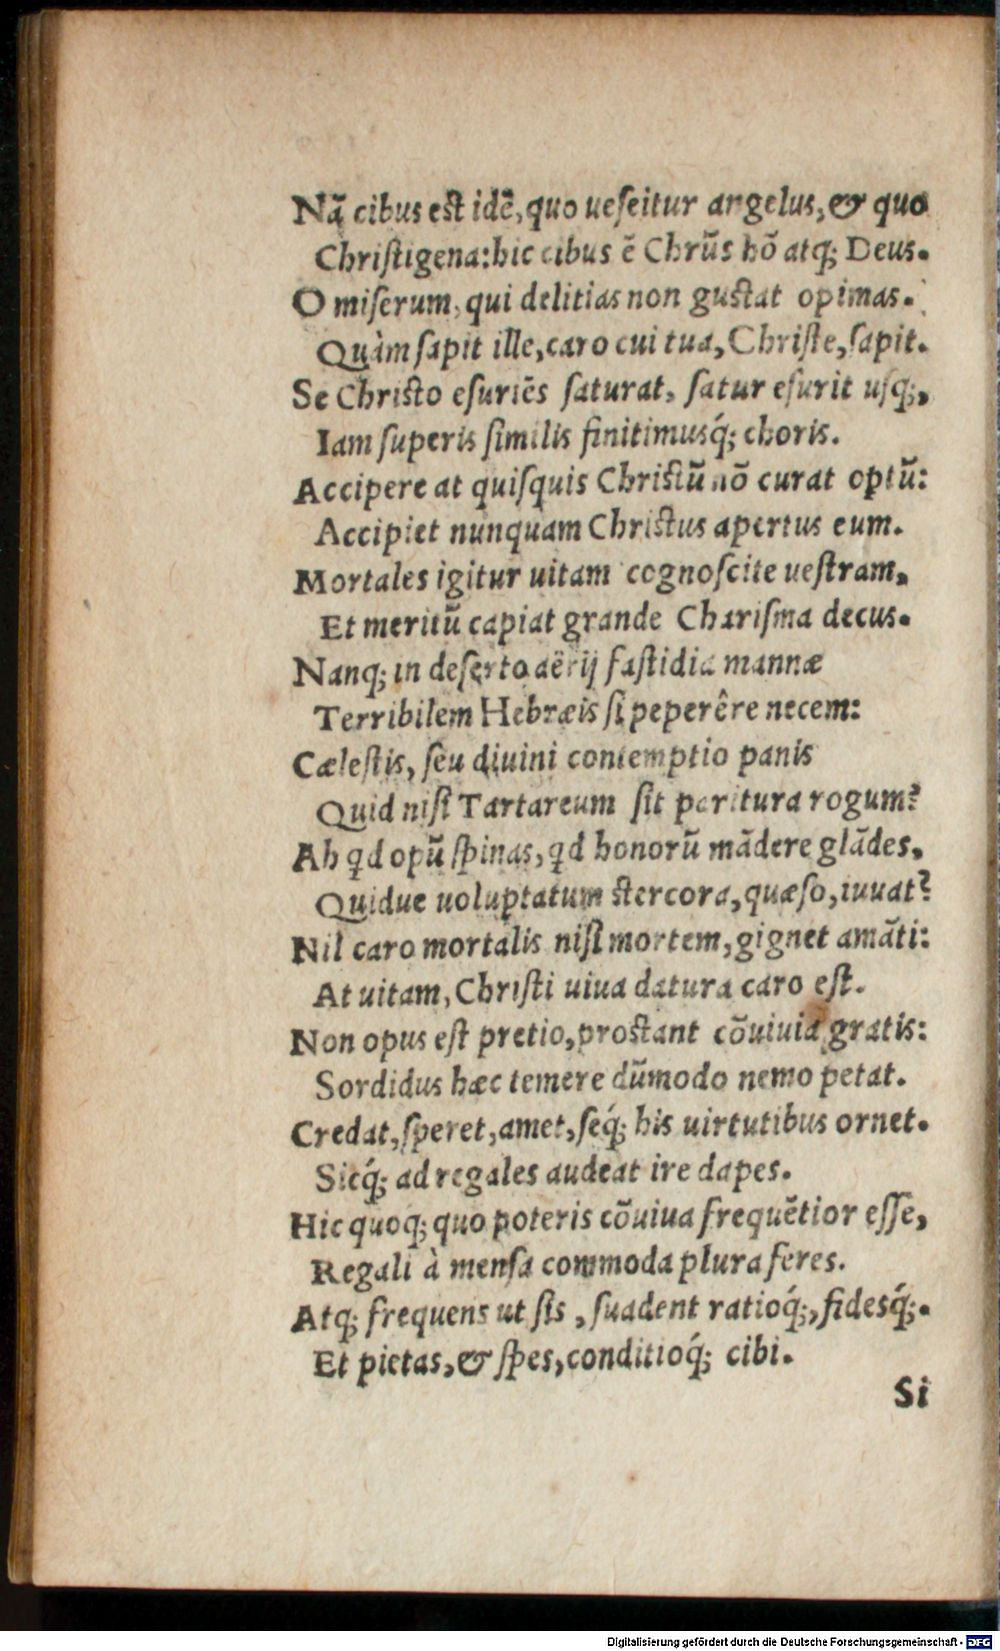 Nã cibus est idẽ, quo ueſeitur angelus, & quo
Chriſtigena: hic cibus ẽ Chrũs hõ atq; Deus.
O miſerum, qui delitias non gustat opimas.
Quàm ſapit ille, caro cui tua, Chriſte, ſapit.
Se Christo eſuriẽs ſaturat, ſatur eſurit uſq;,
Iam ſuperis ſimilis finitimusq́; choris.
Accipere at quiſquis Christũ nõ curat optũ:
Accipiet nunquam Christus apertus eum.
Mortales igitur uitam cognoſcite ueſtram,
Et meritũ capiat grande Chariſma decus.
Nanq; in deſerto aërij faſtidia mannæ
Terribilem Hebræis ſi peperêre necem:
Cæleſtis, ſeu diuini contemptio panis
Quid niſi Tartareum ſit paritura rogum?
Ah qd opũ ſpinas, qd honorũ mãdere glãdes,
Quidue uoluptatum stercora, quæſo, iuuat?
Nil caro mortalis niſi mortem, gignet amãti:
At uitam, Chriſti uiua datura caro eſt.
Non opus eſt pretio, prostant cõuiuia gratis:
Sordidus hæc temere dũmodo nemo petat.
Credat, ſperet, amet, ſeq́; his uirtutibus ornet.
Sicq́; ad regales audeat ire dapes.
Hic quoq; quo poteris cõuiua frequẽtior eſſe,
Regali à menſa commoda plura feres.
Atq; frequens ut ſis, ſuadent ratioq́;, fidesq́;.
Et pietas, & ſpes, conditioq́; cibi.
Si
Digitalisierung gefördert durch die Deutsche Forschungsgemeinschaft - DFG